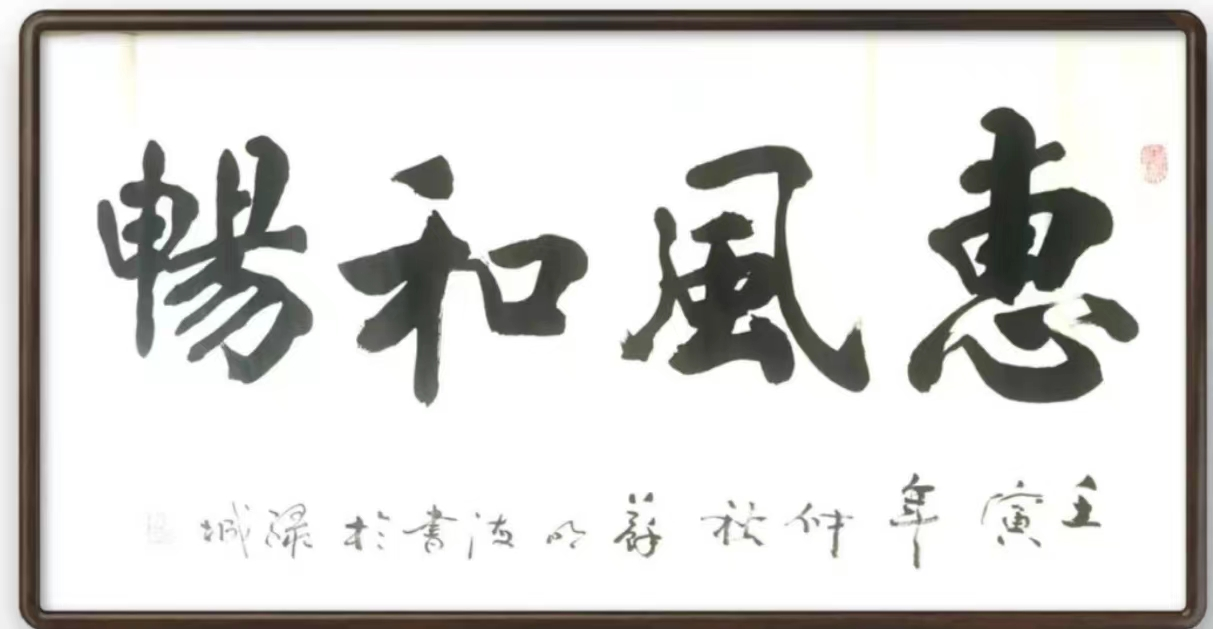 惠風和暢
壬寅年仲秋蘇明海書於綠城